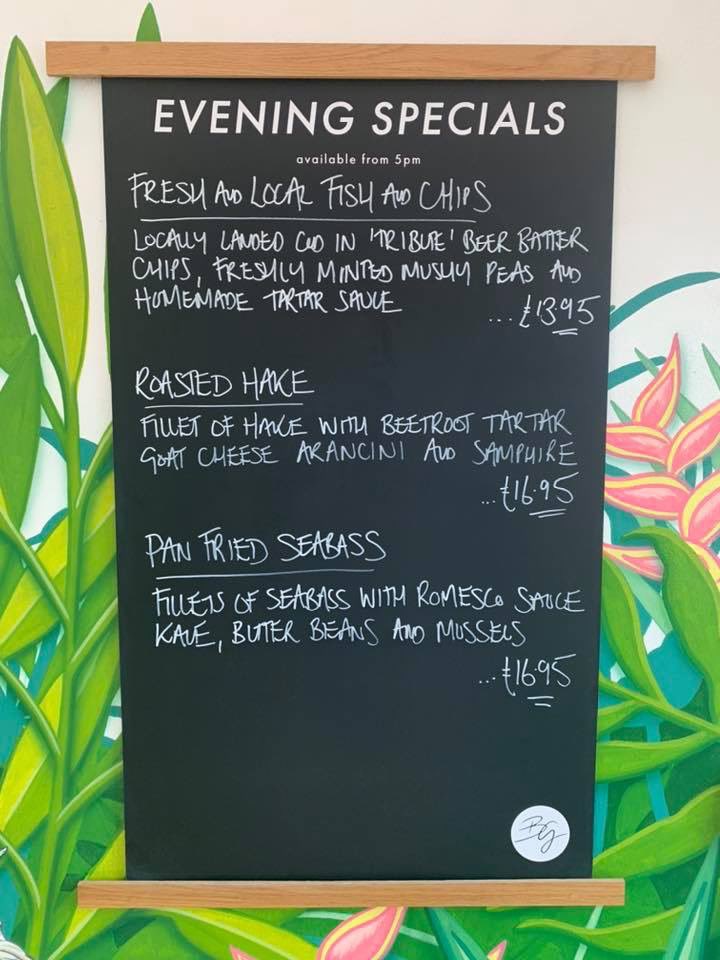 EVENING SPECIALS
available from 5pm
FRESH AND LOCAL FISH AND CHIPS
LOCALLY LANDED COD IN 'TRIBUTE' BEER BATTER
CHIPS, FRESHLY MINTED MUSHY PEAS AND
HOMEMADE TARTAR SAUCE
...£13.95
ROASTED HAKE
FILLET OF HAKE WITH BEETROOT TARTAR
GOAT CHEESE ARANCINI AND SAMPHIRE
...£16.95
PAN FRIED SEABASS
FILLETS OF SEABASS WITH ROMESCO SAUCE
KALE, BUTTER BEANS AND MUSSELS
...£16.95
BG